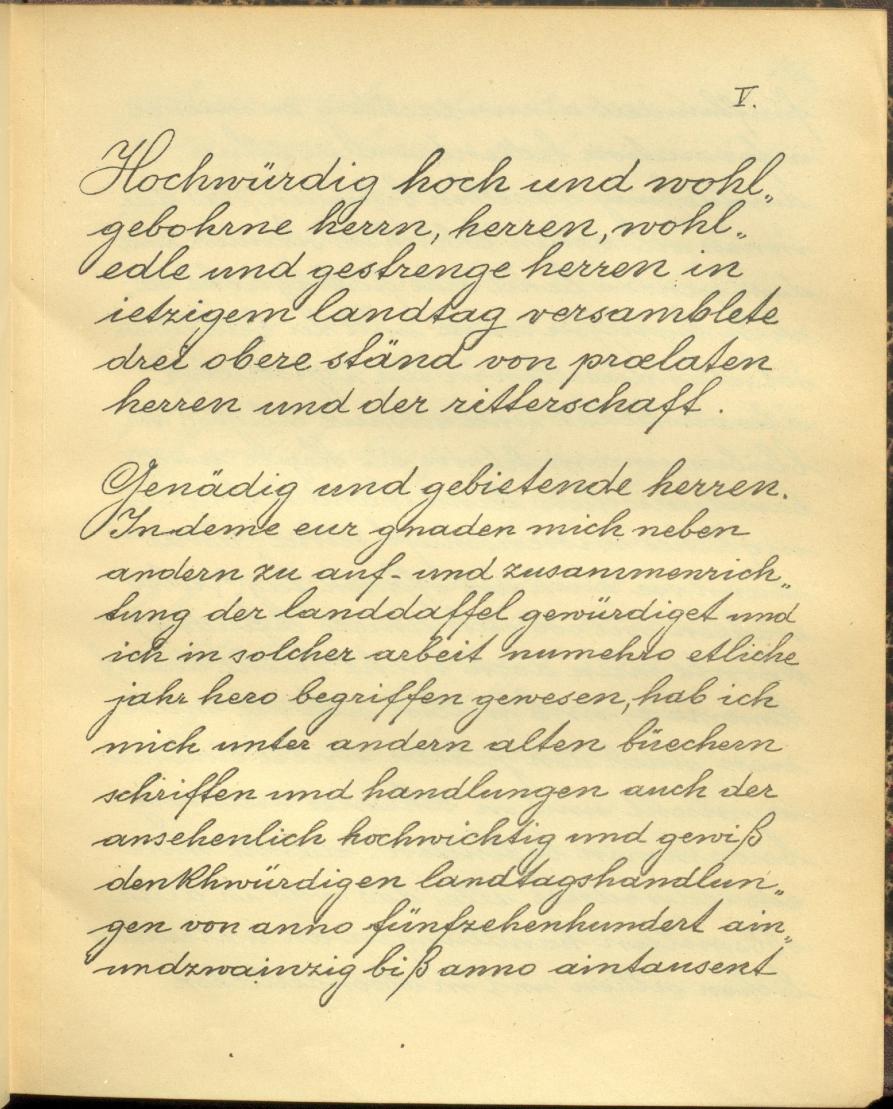 V.
Hochwürdig hoch und wohl„
gebohrne herrn, herren, wohl„
edle und gestrenge herren in
ietzigem landtag versamblete
drei obere ständ von prælaten
herren und der ritterschaft.
Genädig und gebietende herren.
Indeme eur gnaden mich neben
andern zu auf- und zusammenrich„
tung der landdaffel gewürdiget und
ich in solcher arbeit numehro etliche
jahr hero begriffen gewesen, hab ich
mich unter andern alten büechern
schriften und handlungen auch der
ansehenlich hochwichtig und gewiß
denkhwürdigen landtagshandlun„
gen von anno fünfzehenhundert ain„
undzwainzig biß anno aintausent